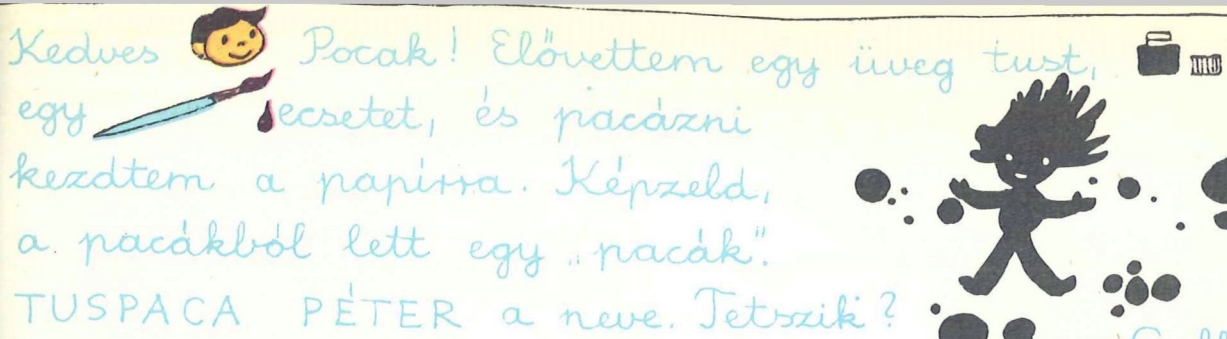 Kedves Pocak! Elővettem egy üveg tust,
egy ecsetet, és pacázni
kezdtem a papírra. Képzeld,
a pacákból lett egy „pacák".
TUSPACA PÉTER a neve. Tetszik?